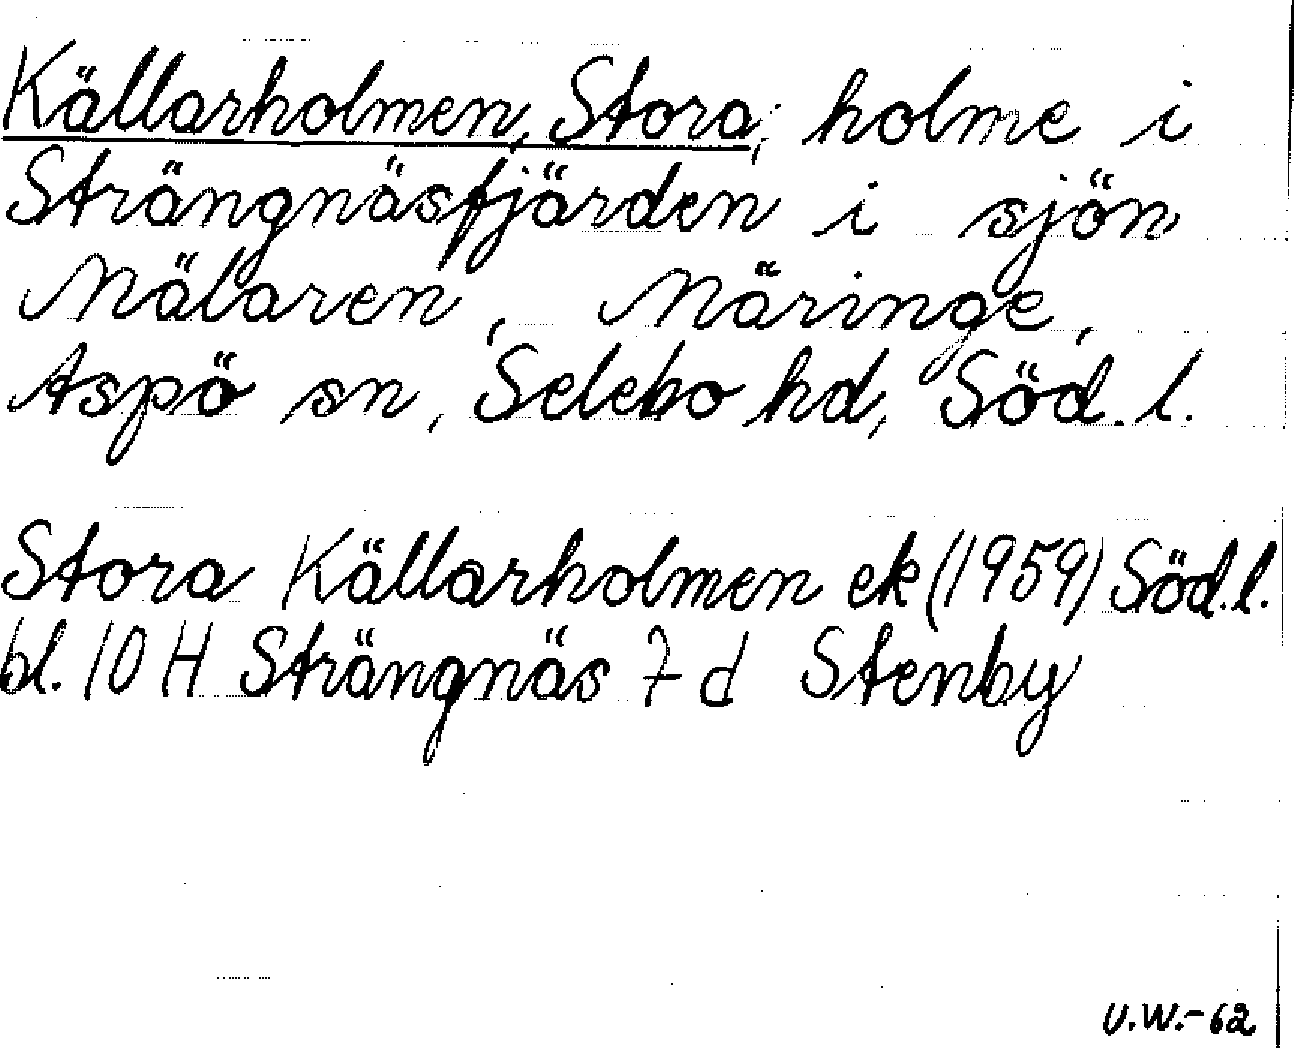 Källarholmen, Stora, holme i
Strängnäsfjärden i sjön
Mälaren, Märinge,
Aspö sn, Selebo hd, Söd. l.
Stora Källarholmen ek (1959) Söd.l.
bl. 10 H Strängnäs 7 d Stenby
U.W.-62